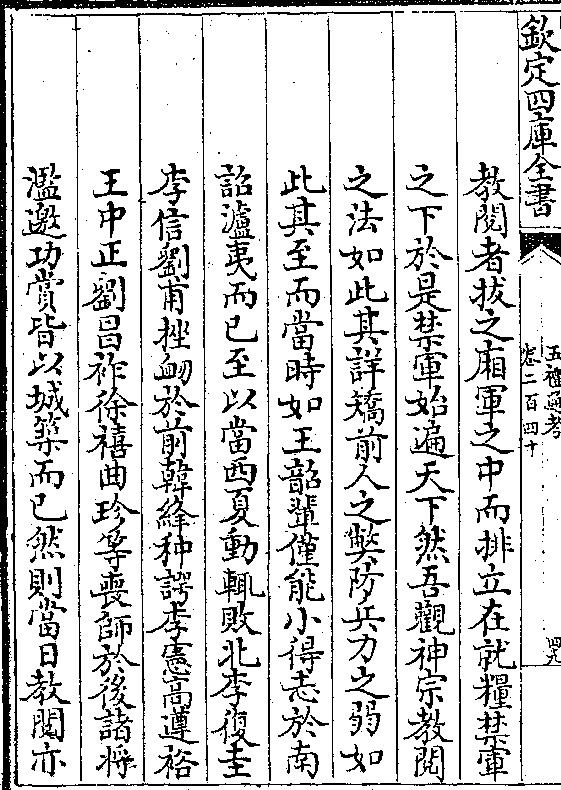 欽定四庫全書
五禮通考
卷二百四十
四九
教閱者拔之廂軍之中而排立在就糧禁軍
之下於是禁軍始遍天下然吾觀神宗教閱
之法如此其詳矯前人之弊防兵力之弱如
此其至而當時如王韶輩僅能小得志於南
詔瀘夷而已至以當西夏動輒敗北李復圭
李信劉甫挫衄於前韓絳种諤李憲高遵裕
王中正劉昌祚徐禧曲珍等喪師於後諸將
濫邀功賞皆以城築而已然則當日教閱亦